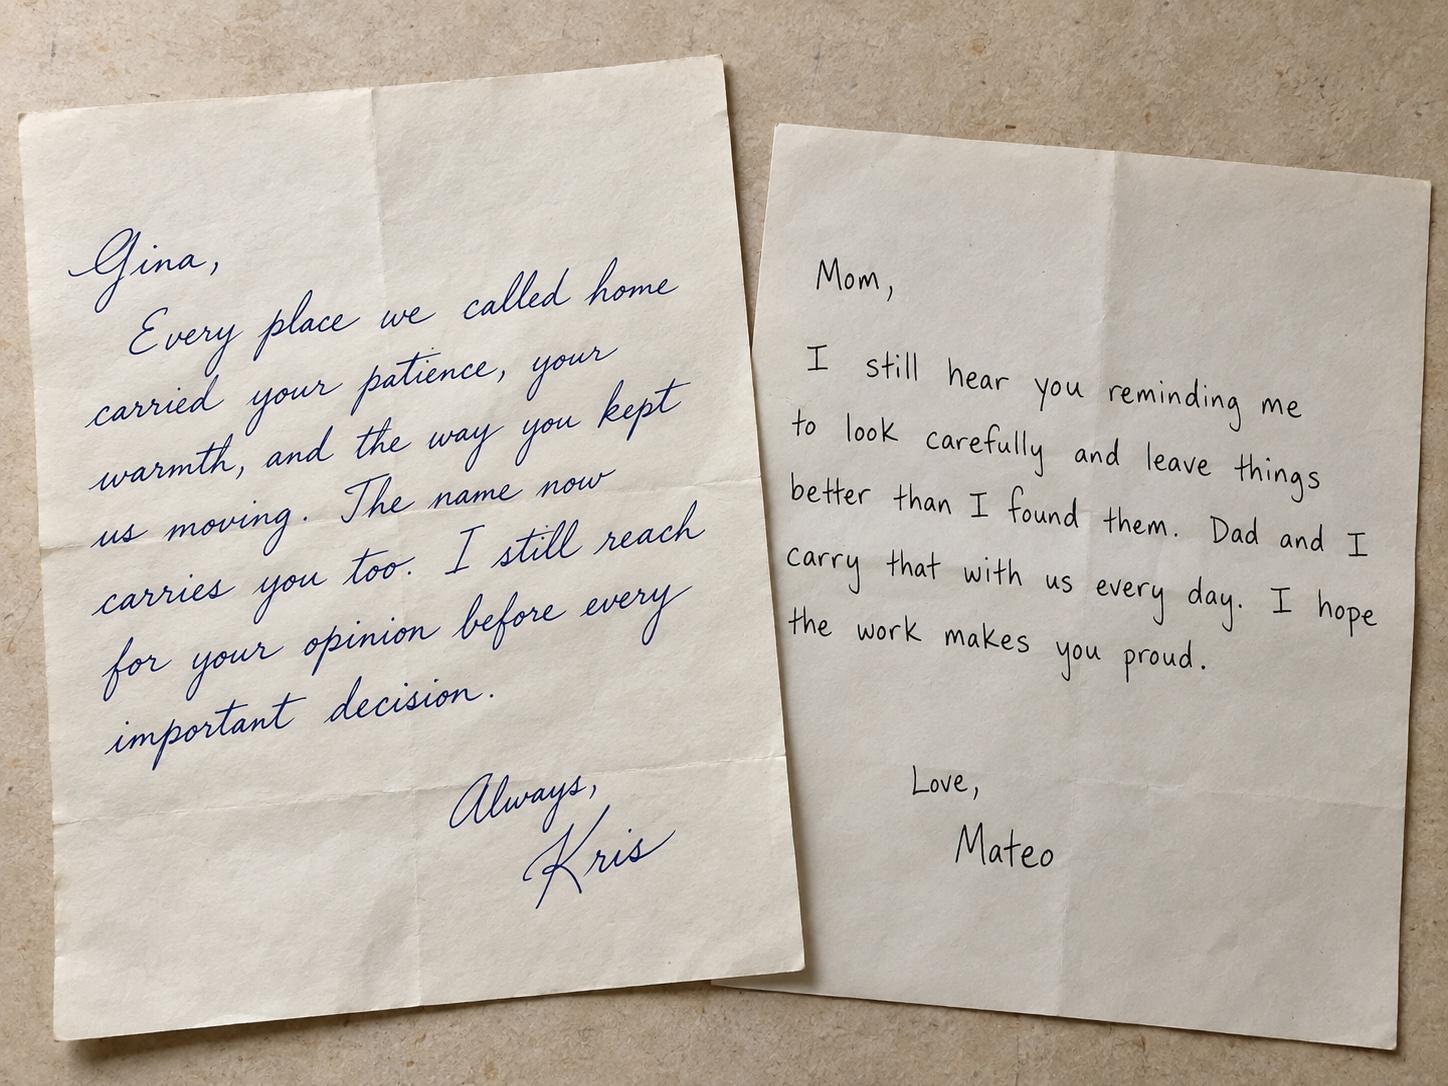 Gina,
Every place we called home
carried your patience, your
warmth, and the way you kept
us moving. The name now
carries you too. I still reach
for your opinion before every
important decision.
Always,
Kris
Mom,
I still hear you reminding me
to look carefully and leave things
better than I found them. Dad and I
carry that with us every day. I hope
the work makes you proud.
Love,
Mateo